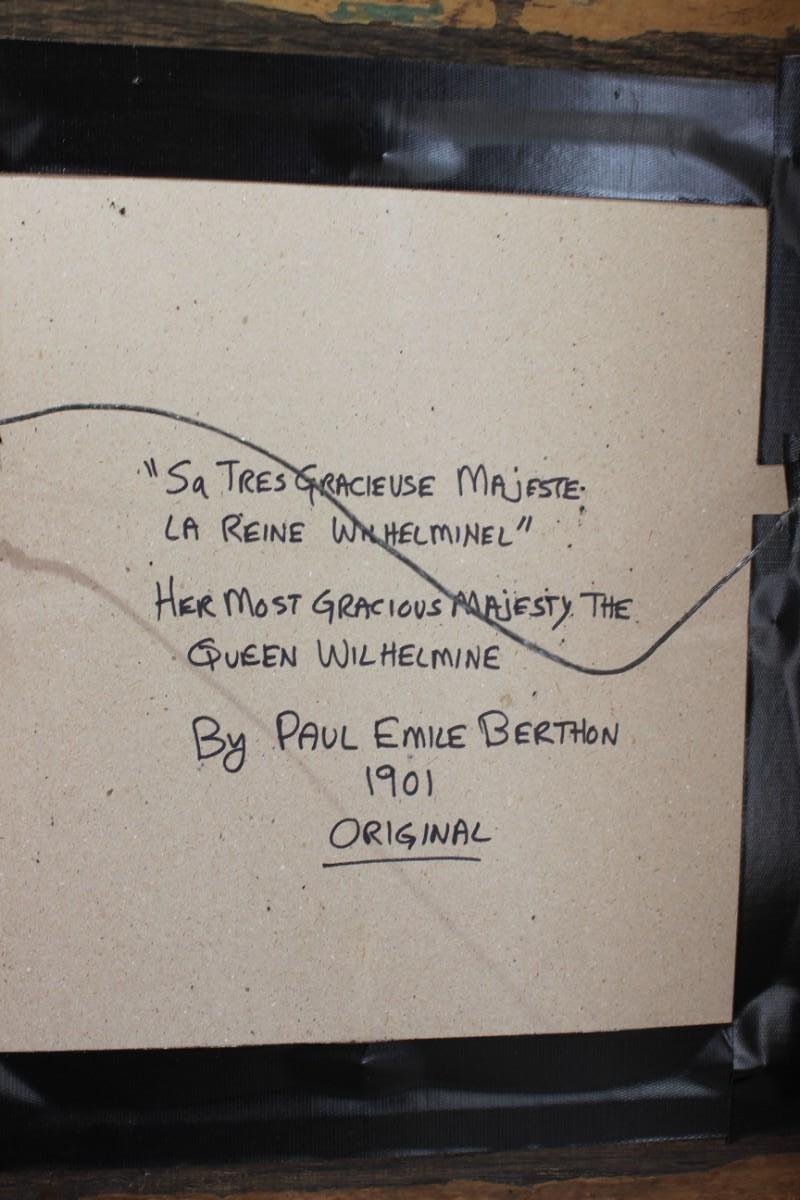 "Sa TRES GRACIEUSE MAJESTE.
LA REINE WILHELMINEL"
HER MOST GRACIOUS MAJESTY THE
QUEEN WILHELMINE
By PAUL EMILE BERTHON
1901
ORIGINAL